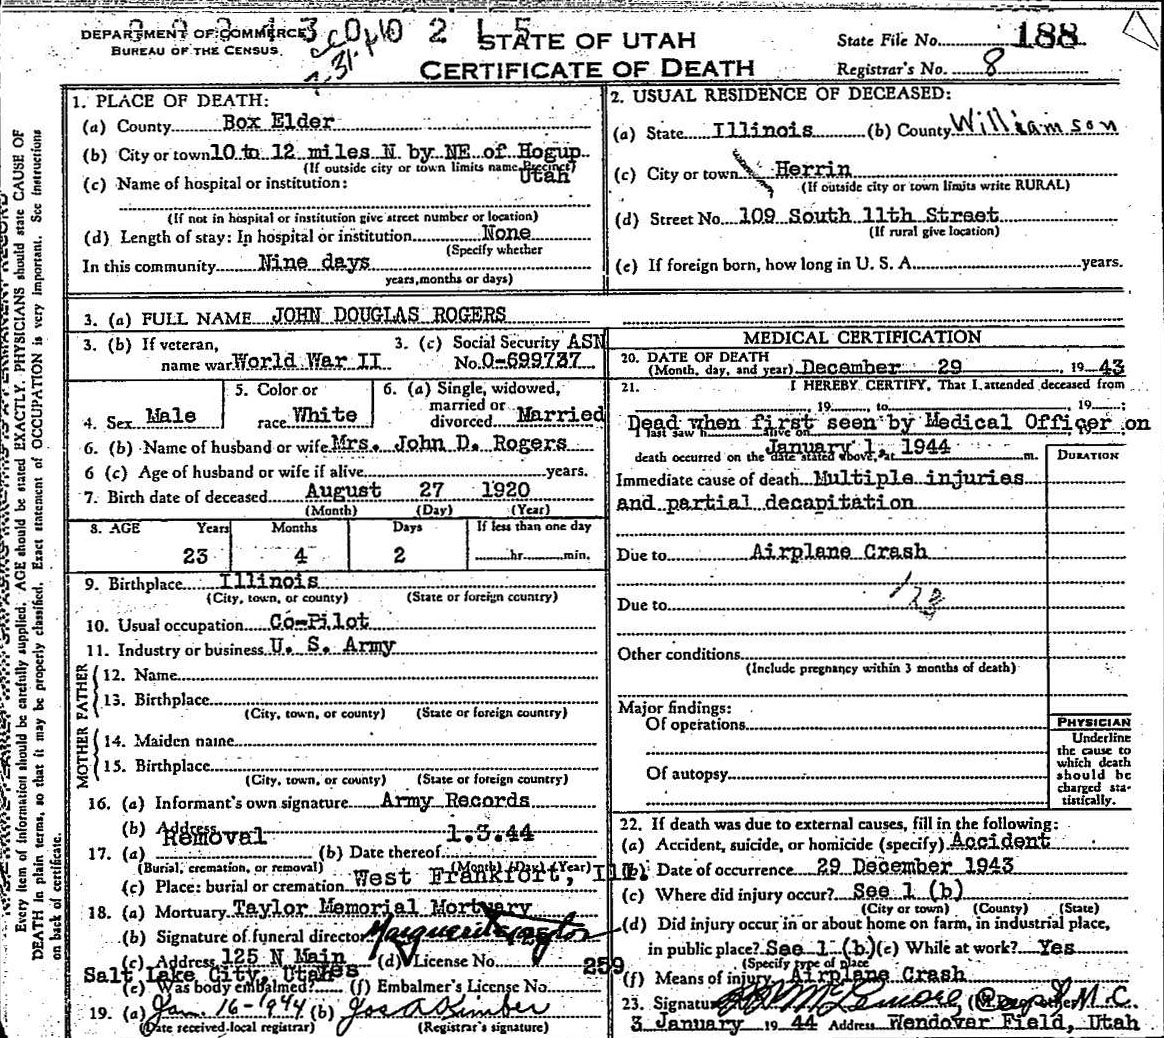 DEPARTMENT OF COMMERCE
BUREAU OF THE CENSUS
STATE OF UTAH
CERTIFICATE OF DEATH
State File No. 188
Registrar's No. 8
1. PLACE OF DEATH:
(a) County Box Elder
(b) City or town 10 to 12 miles N by NE of Hogup
(If outside city or town limits name Precinct)
Utah
(c) Name of hospital or institution:
(If not in hospital or institution give street number or location)
(d) Length of stay: In hospital or institution None
(Specify whether
In this community Nine days
years, months or days)
2. USUAL RESIDENCE OF DECEASED:
(a) State Illinois (b) County Williamson
(c) City or town Herrin
(If outside city or town limits write RURAL)
(d) Street No. 109 South 11th Street
(If rural give location)
(e) If foreign born, how long in U. S. A. years.
3. (a) FULL NAME JOHN DOUGLAS ROGERS
3. (b) If veteran, name war World War II
3. (c) Social Security ASN No. O-699737
4. Sex Male
5. Color or race White
6. (a) Single, widowed, married or divorced Married
6. (b) Name of husband or wife Mrs. John D. Rogers
6 (c) Age of husband or wife if alive years.
7. Birth date of deceased August 27 1920
(Month) (Day) (Year)
8. AGE Years Months Days If less than one day
23 4 2 hr. min.
9. Birthplace Illinois
(City, town, or county) (State or foreign country)
10. Usual occupation Co-Pilot
11. Industry or business U. S. Army
FATHER
12. Name
13. Birthplace
(City, town, or county) (State or foreign country)
MOTHER
14. Maiden name
15. Birthplace
(City, town, or county) (State or foreign country)
16. (a) Informant's own signature Army Records
(b) Address
17. (a) Removal (b) Date thereof 1.3.44
(Burial, cremation, or removal) (Month) (Day) (Year)
(c) Place: burial or cremation West Frankfort, Ill.
18. (a) Mortuary Taylor Memorial Mortuary
(b) Signature of funeral director Marguerite Taylor
(c) Address 125 N Main (d) License No. 259
Salt Lake City, Utah
(e) Was body embalmed? Yes (f) Embalmer's License No.
19. (a) Jan. 16-1944 (b) Jos A Kimber
(Date received local registrar) (Registrar's signature)
MEDICAL CERTIFICATION
20. DATE OF DEATH
(Month, day, and year) December 29 , 19 43
21. I HEREBY CERTIFY, That I attended deceased from
, 19 , to , 19 ;
Dead when first seen by Medical Officer on
I last saw h alive on , 19
January 1 1944
death occurred on the date stated above, at m.
DURATION
Immediate cause of death Multiple injuries
and partial decapitation
Due to Airplane Crash
Due to
Other conditions
(Include pregnancy within 3 months of death)
Major findings:
Of operations
Of autopsy
PHYSICIAN
Underline
the cause to
which death
should be
charged sta-
tistically.
22. If death was due to external causes, fill in the following:
(a) Accident, suicide, or homicide (specify) Accident
(b) Date of occurrence 29 December 1943
(c) Where did injury occur? See 1 (b)
(City or town) (County) (State)
(d) Did injury occur in or about home on farm, in industrial place,
in public place? See 1 (b) (e) While at work? Yes
(Specify type of place)
(f) Means of injury Airplane Crash
23. Signature Capt, M.C.
3 January 19 44 Address Wendover Field, Utah
Every item of information should be carefully supplied. AGE should be stated EXACTLY. PHYSICIANS should state CAUSE OF
DEATH in plain terms, so that it may be properly classified. Exact statement of OCCUPATION is very important. See instructions
on back of certificate.